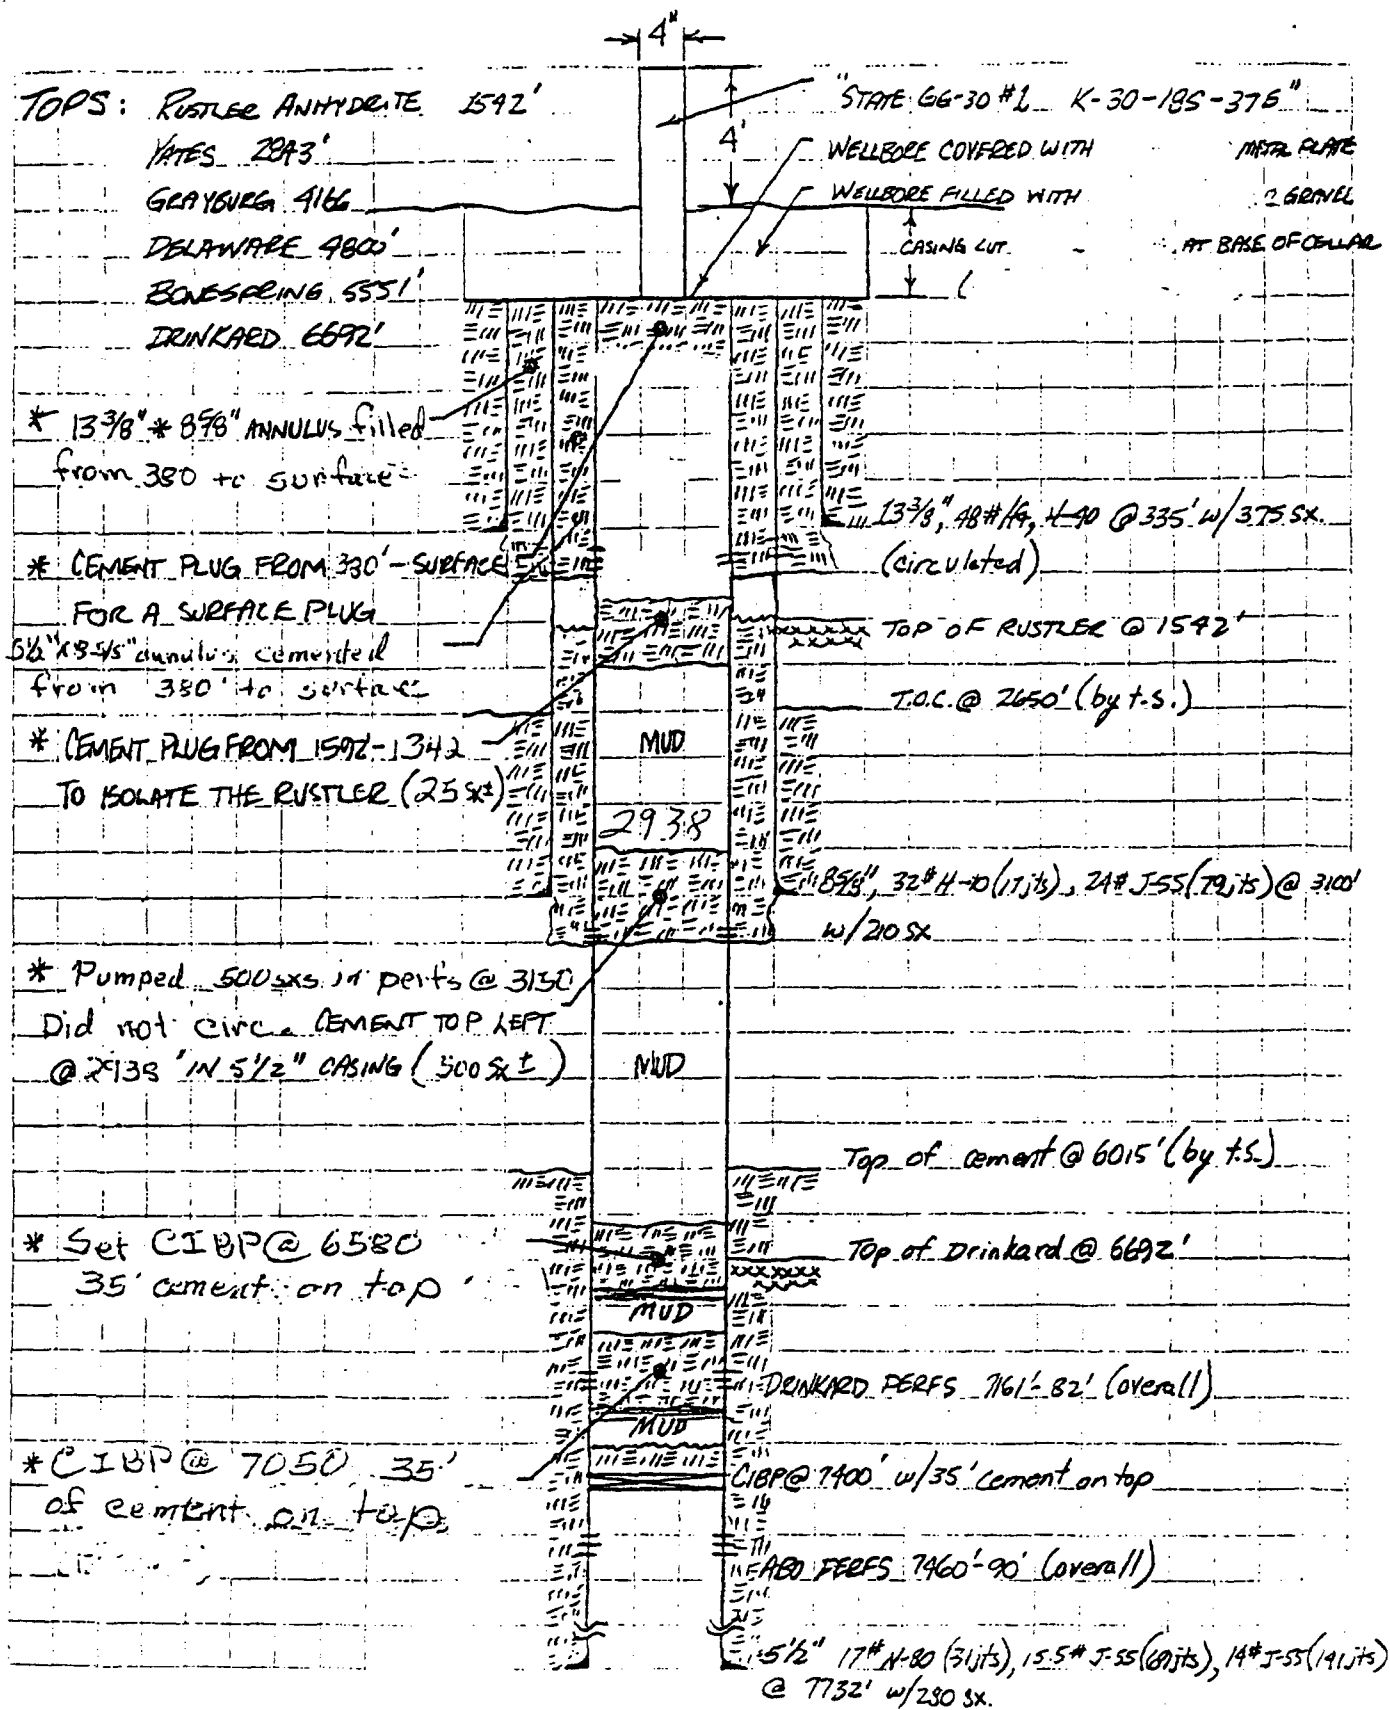 4"
TOPS: RUSTLER ANHYDRITE 1542'
YATES 2843'
GRAYBURG 4166
DELAWARE 4800'
BONESPRING 5551'
DRINKARD 6692'
"STATE GG-30 #1 K-30-18S-37E"
4'
WELLBORE COVERED WITH METAL PLATE
WELLBORE FILLED WITH GRAVEL
CASING CUT AT BASE OF CELLAR
* 13 3/8" * 8 5/8" ANNULUS filled
from 380 to surface
13 3/8", 48#/ft, H-40 @ 335' w/375 sx.
(circulated)
* CEMENT PLUG FROM 380'-SURFACE
FOR A SURFACE PLUG
5 1/2" x 8 5/8" annulus cemented
from 380' to surface
TOP OF RUSTLER @ 1542'
T.O.C. @ 2650' (by t.s.)
* CEMENT PLUG FROM 1592'-1342
TO ISOLATE THE RUSTLER (25 sx±)
MUD
2938
8 5/8", 32# H-40 (17 jts), 24# J-55 (79 jts) @ 3100'
w/210 sx
* Pumped 500 sxs in perfs @ 3150
Did not circ. CEMENT TOP LEFT
@ 2938' IN 5 1/2" CASING (500 sx ±)
MUD
Top of cement @ 6015' (by t.s.)
* Set CIBP @ 6580
35' cement on top
Top of Drinkard @ 6692'
MUD
DRINKARD PERFS 7161'-82' (overall)
MUD
* CIBP @ 7050 35'
of cement on top
CIBP @ 7400' w/35' cement on top
ABO PERFS 7460'-90' (overall)
5 1/2" 17# N-80 (31 jts), 15.5# J-55 (69 jts), 14# J-55 (141 jts)
@ 7732' w/230 sx.